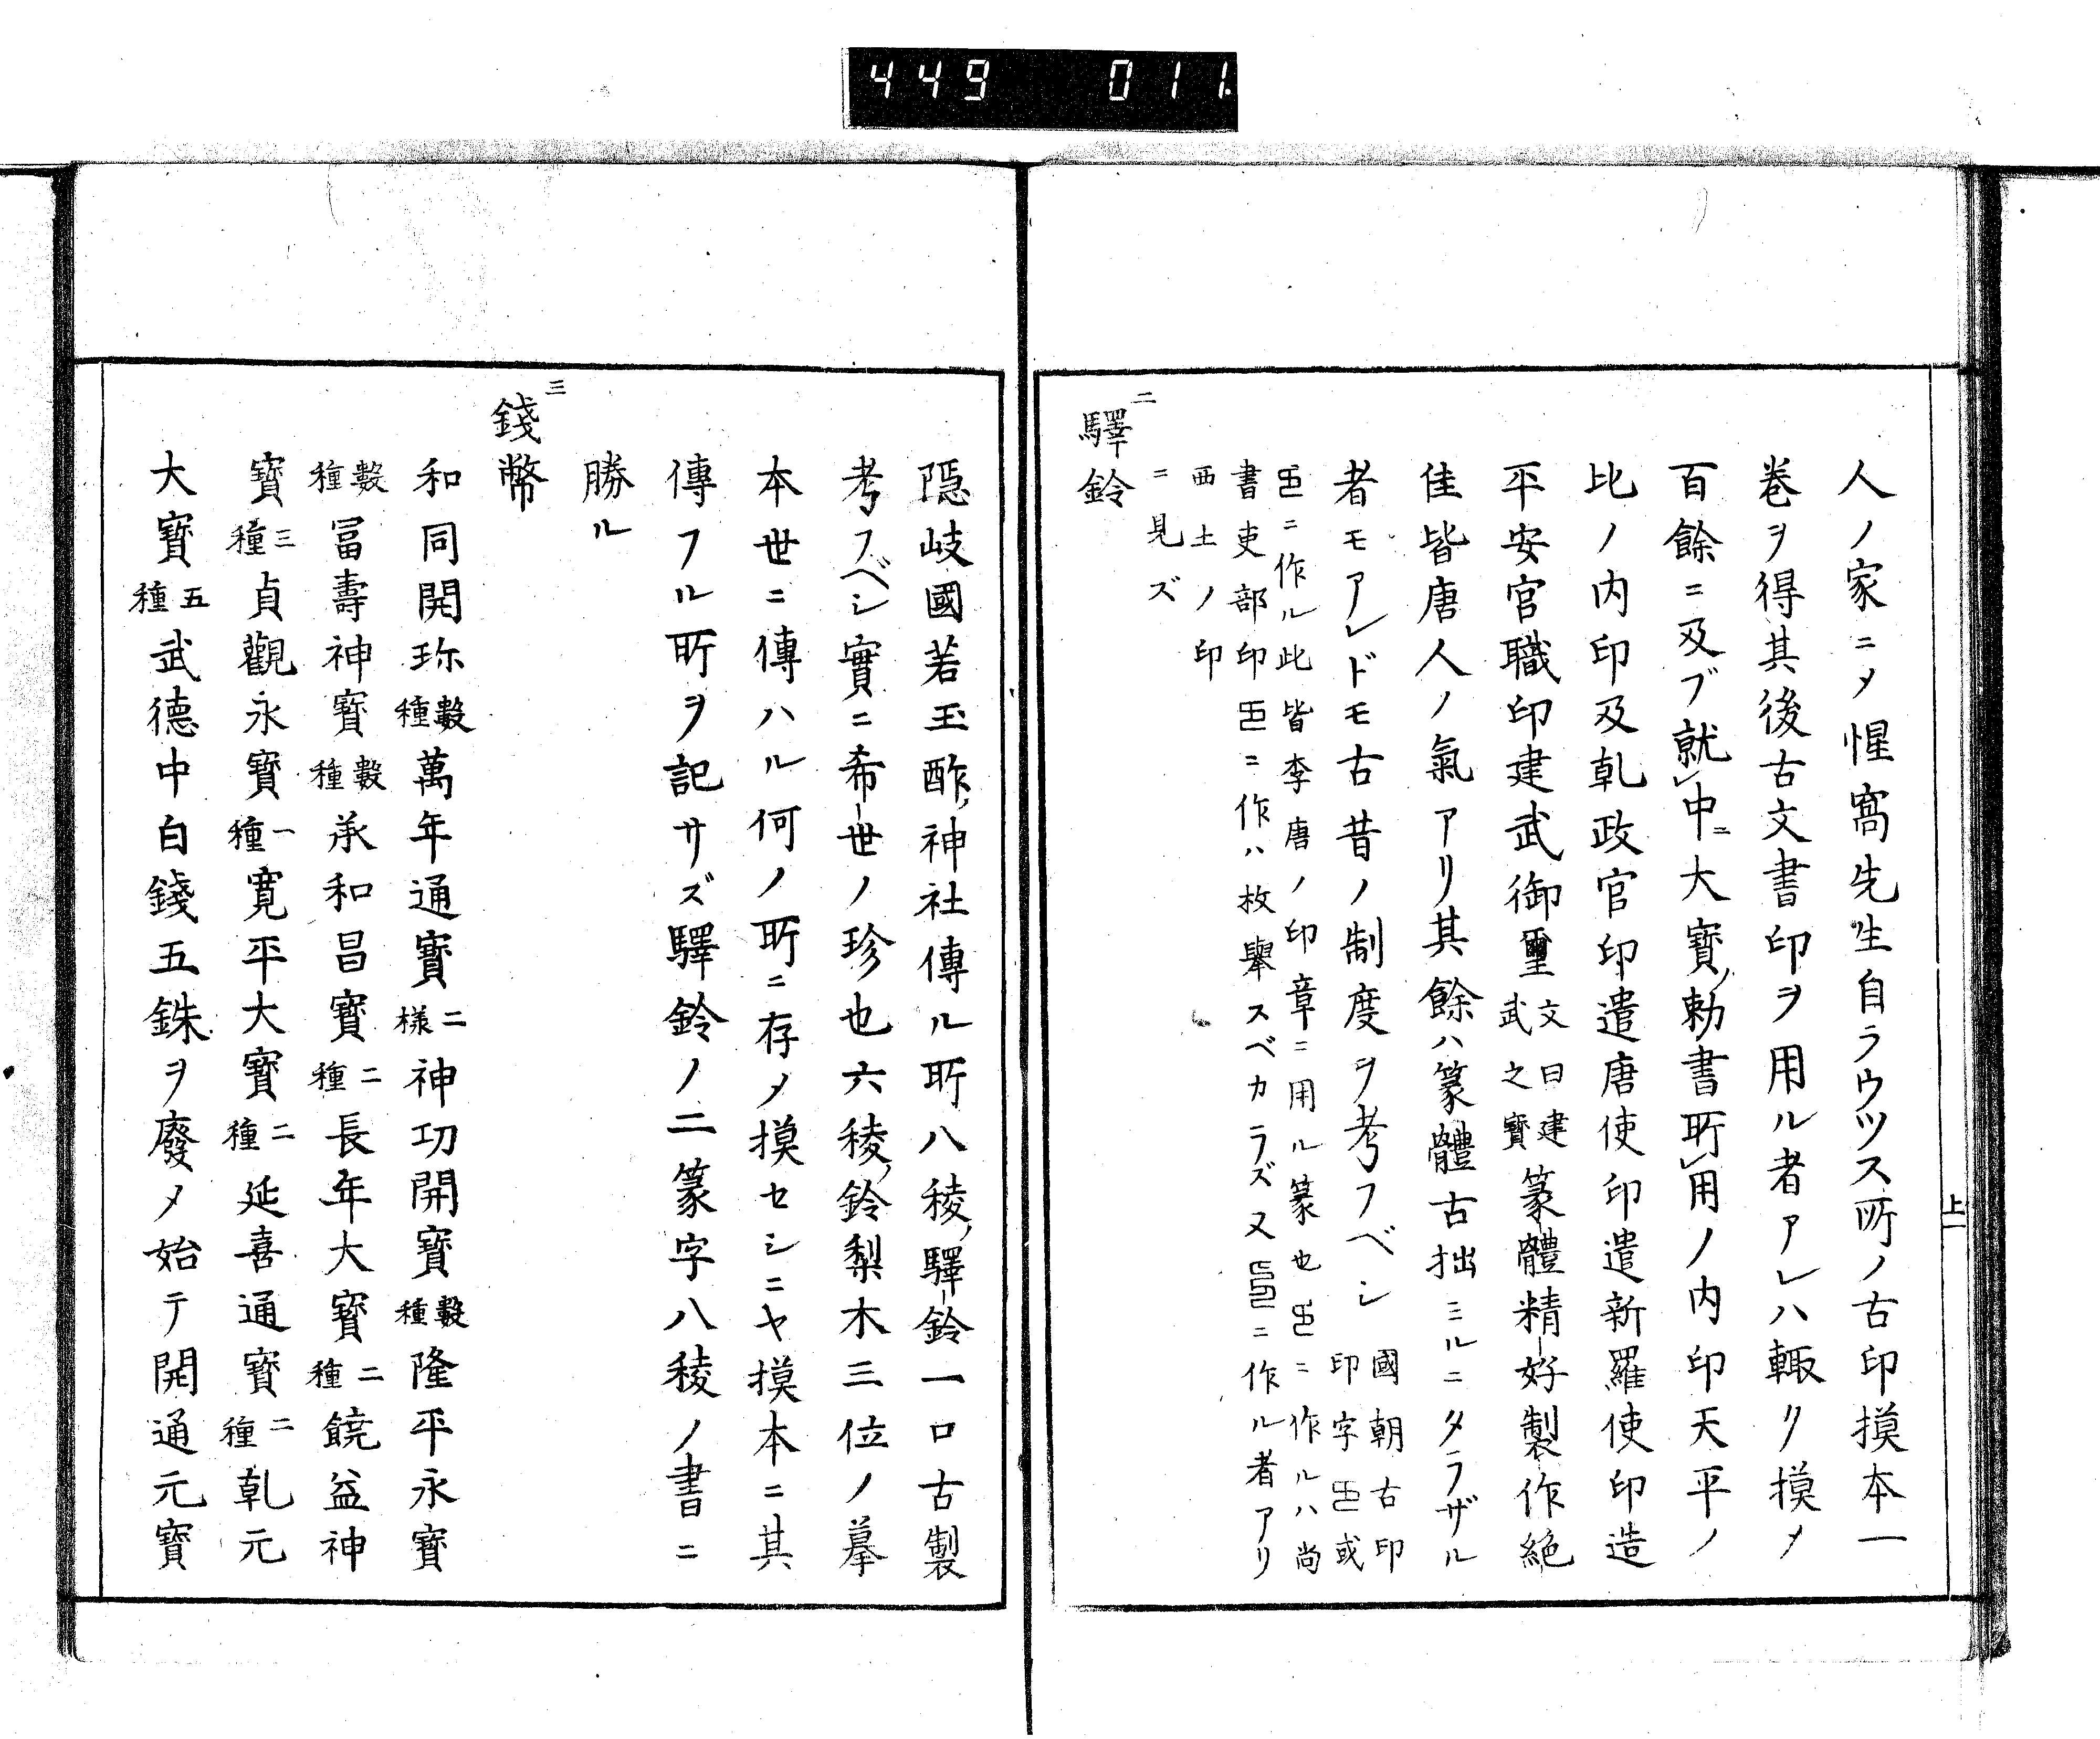 449 011
上
人ノ家ニメ惺窩先生自ラウツス所ノ古印摸本一
巻ヲ得其後古文書印ヲ用ル者アレハ輙ク摸メ
百餘ニ及ブ就中ニ大寳ノ勅書所用ノ内印天平ノ
比ノ内印及乹政官印遣唐使印遣新羅使印造
平安官職印建武御璽文曰建武之寳篆體精好製作絶
佳皆唐人ノ氣アリ其餘ハ篆體古拙ミルニタラザル
者モアレドモ古昔ノ制度ヲ考フベシ國朝古印印字或
ニ作ル此皆李唐ノ印章ニ用ル篆也ニ作ルハ尚
書吏部印ニ作ハ枚擧スベカラズ又ニ作ル者アリ
西土ノ印
ニ見ズ
二
驛鈴
隠岐國若玉酢神社傳ル所八稜驛鈴一口古製
考フベシ實ニ希世ノ珍也六稜鈴梨木三位ノ摹
本世ニ傳ハル何ノ所ニ存メ摸セシニヤ摸本ニ其
傳フル所ヲ記サズ驛鈴ノ二篆字八稜ノ書ニ
勝ル
三
錢幣
和同開珎數種萬年通寳二様神功開寳數種隆平永寳
數種冨壽神寳數種承和昌寳二種長年大寳二種饒益神
寳三種貞觀永寳一種寛平大寳二種延喜通寳二種乹元
大寳五種武德中白錢五銖ヲ廢メ始テ開通元寳